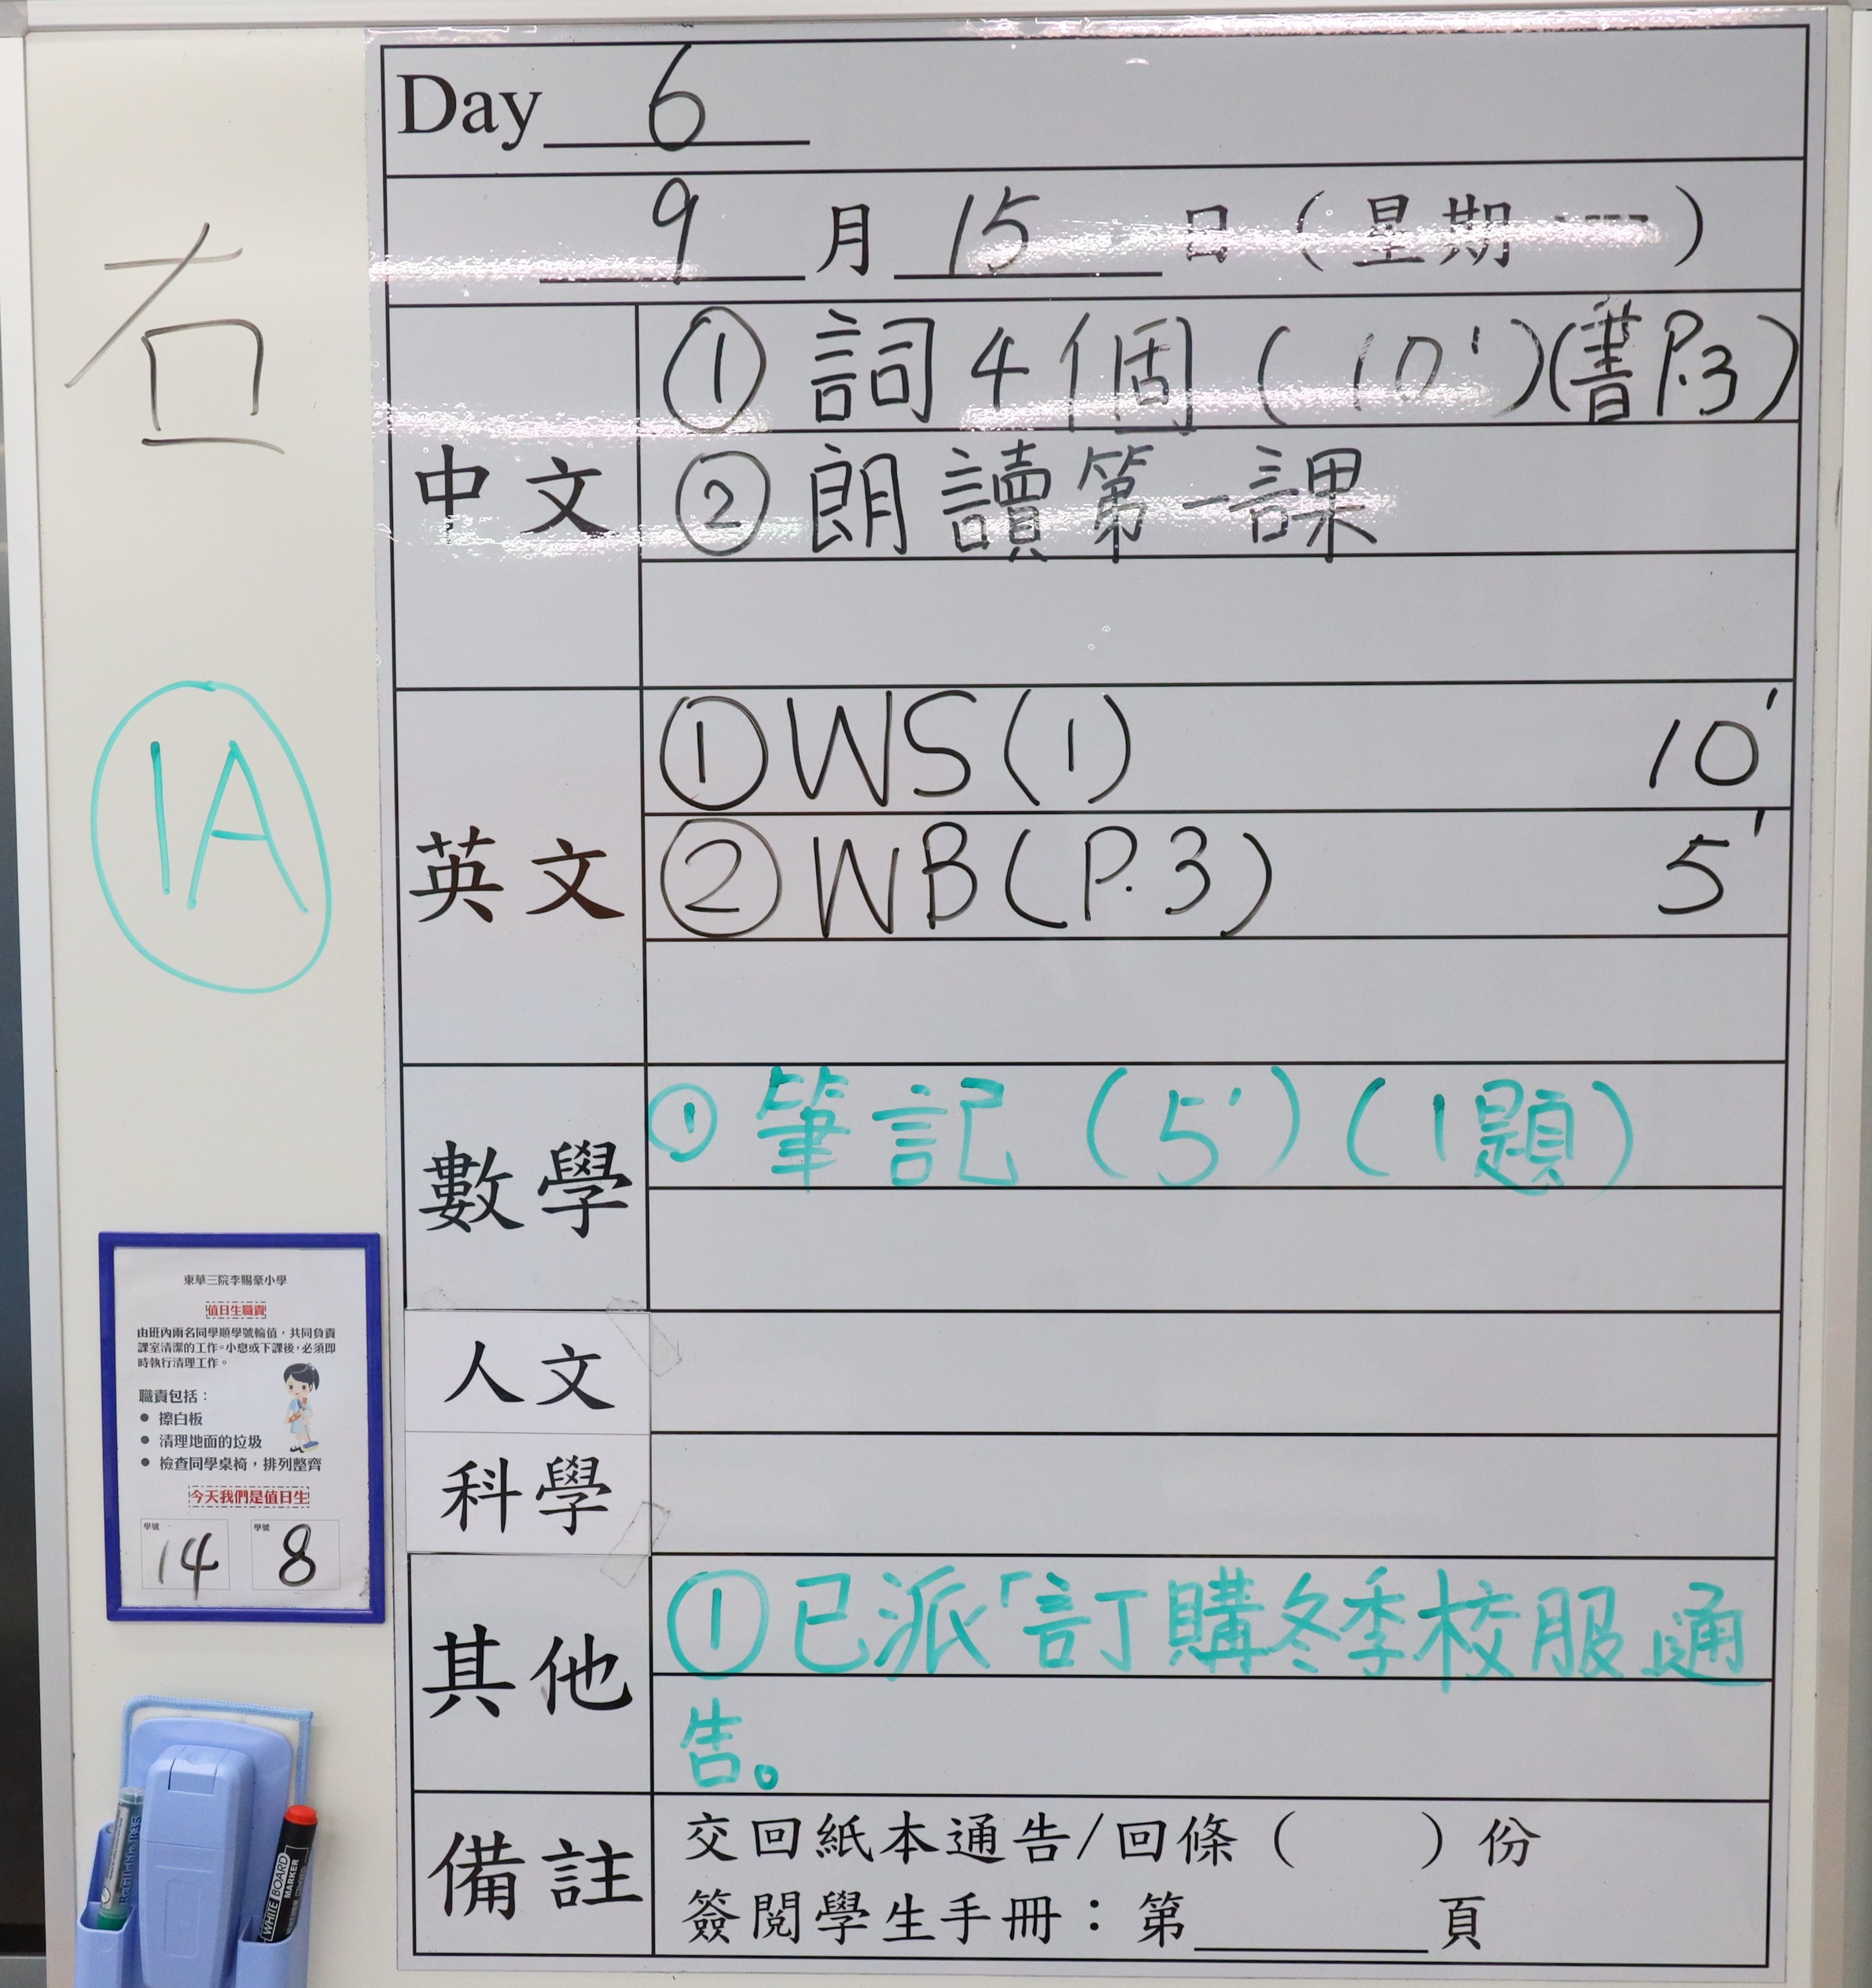 Day 6
9月15日（星期一）
中文
① 詞4個（10'）（書P.3）
② 朗讀第一課
英文
① WS(1) 10'
② WB(P.3) 5'
數學
① 筆記（5'）（1題）
人文
科學
其他
① 已派「訂購冬季校服通
告。
備註
交回紙本通告/回條（　　）份
簽閱學生手冊：第______頁
1A
東華三院李賜豪小學
值日生職責
由班內兩名同學順學號輪值，共同負責
課室清潔的工作。小息或下課後，必須即
時執行清理工作。
職責包括：
● 擦白板
● 清理地面的垃圾
● 檢查同學桌椅，排列整齊
今天我們是值日生
學號 14 學號 8
WHITE BOARD
MARKER